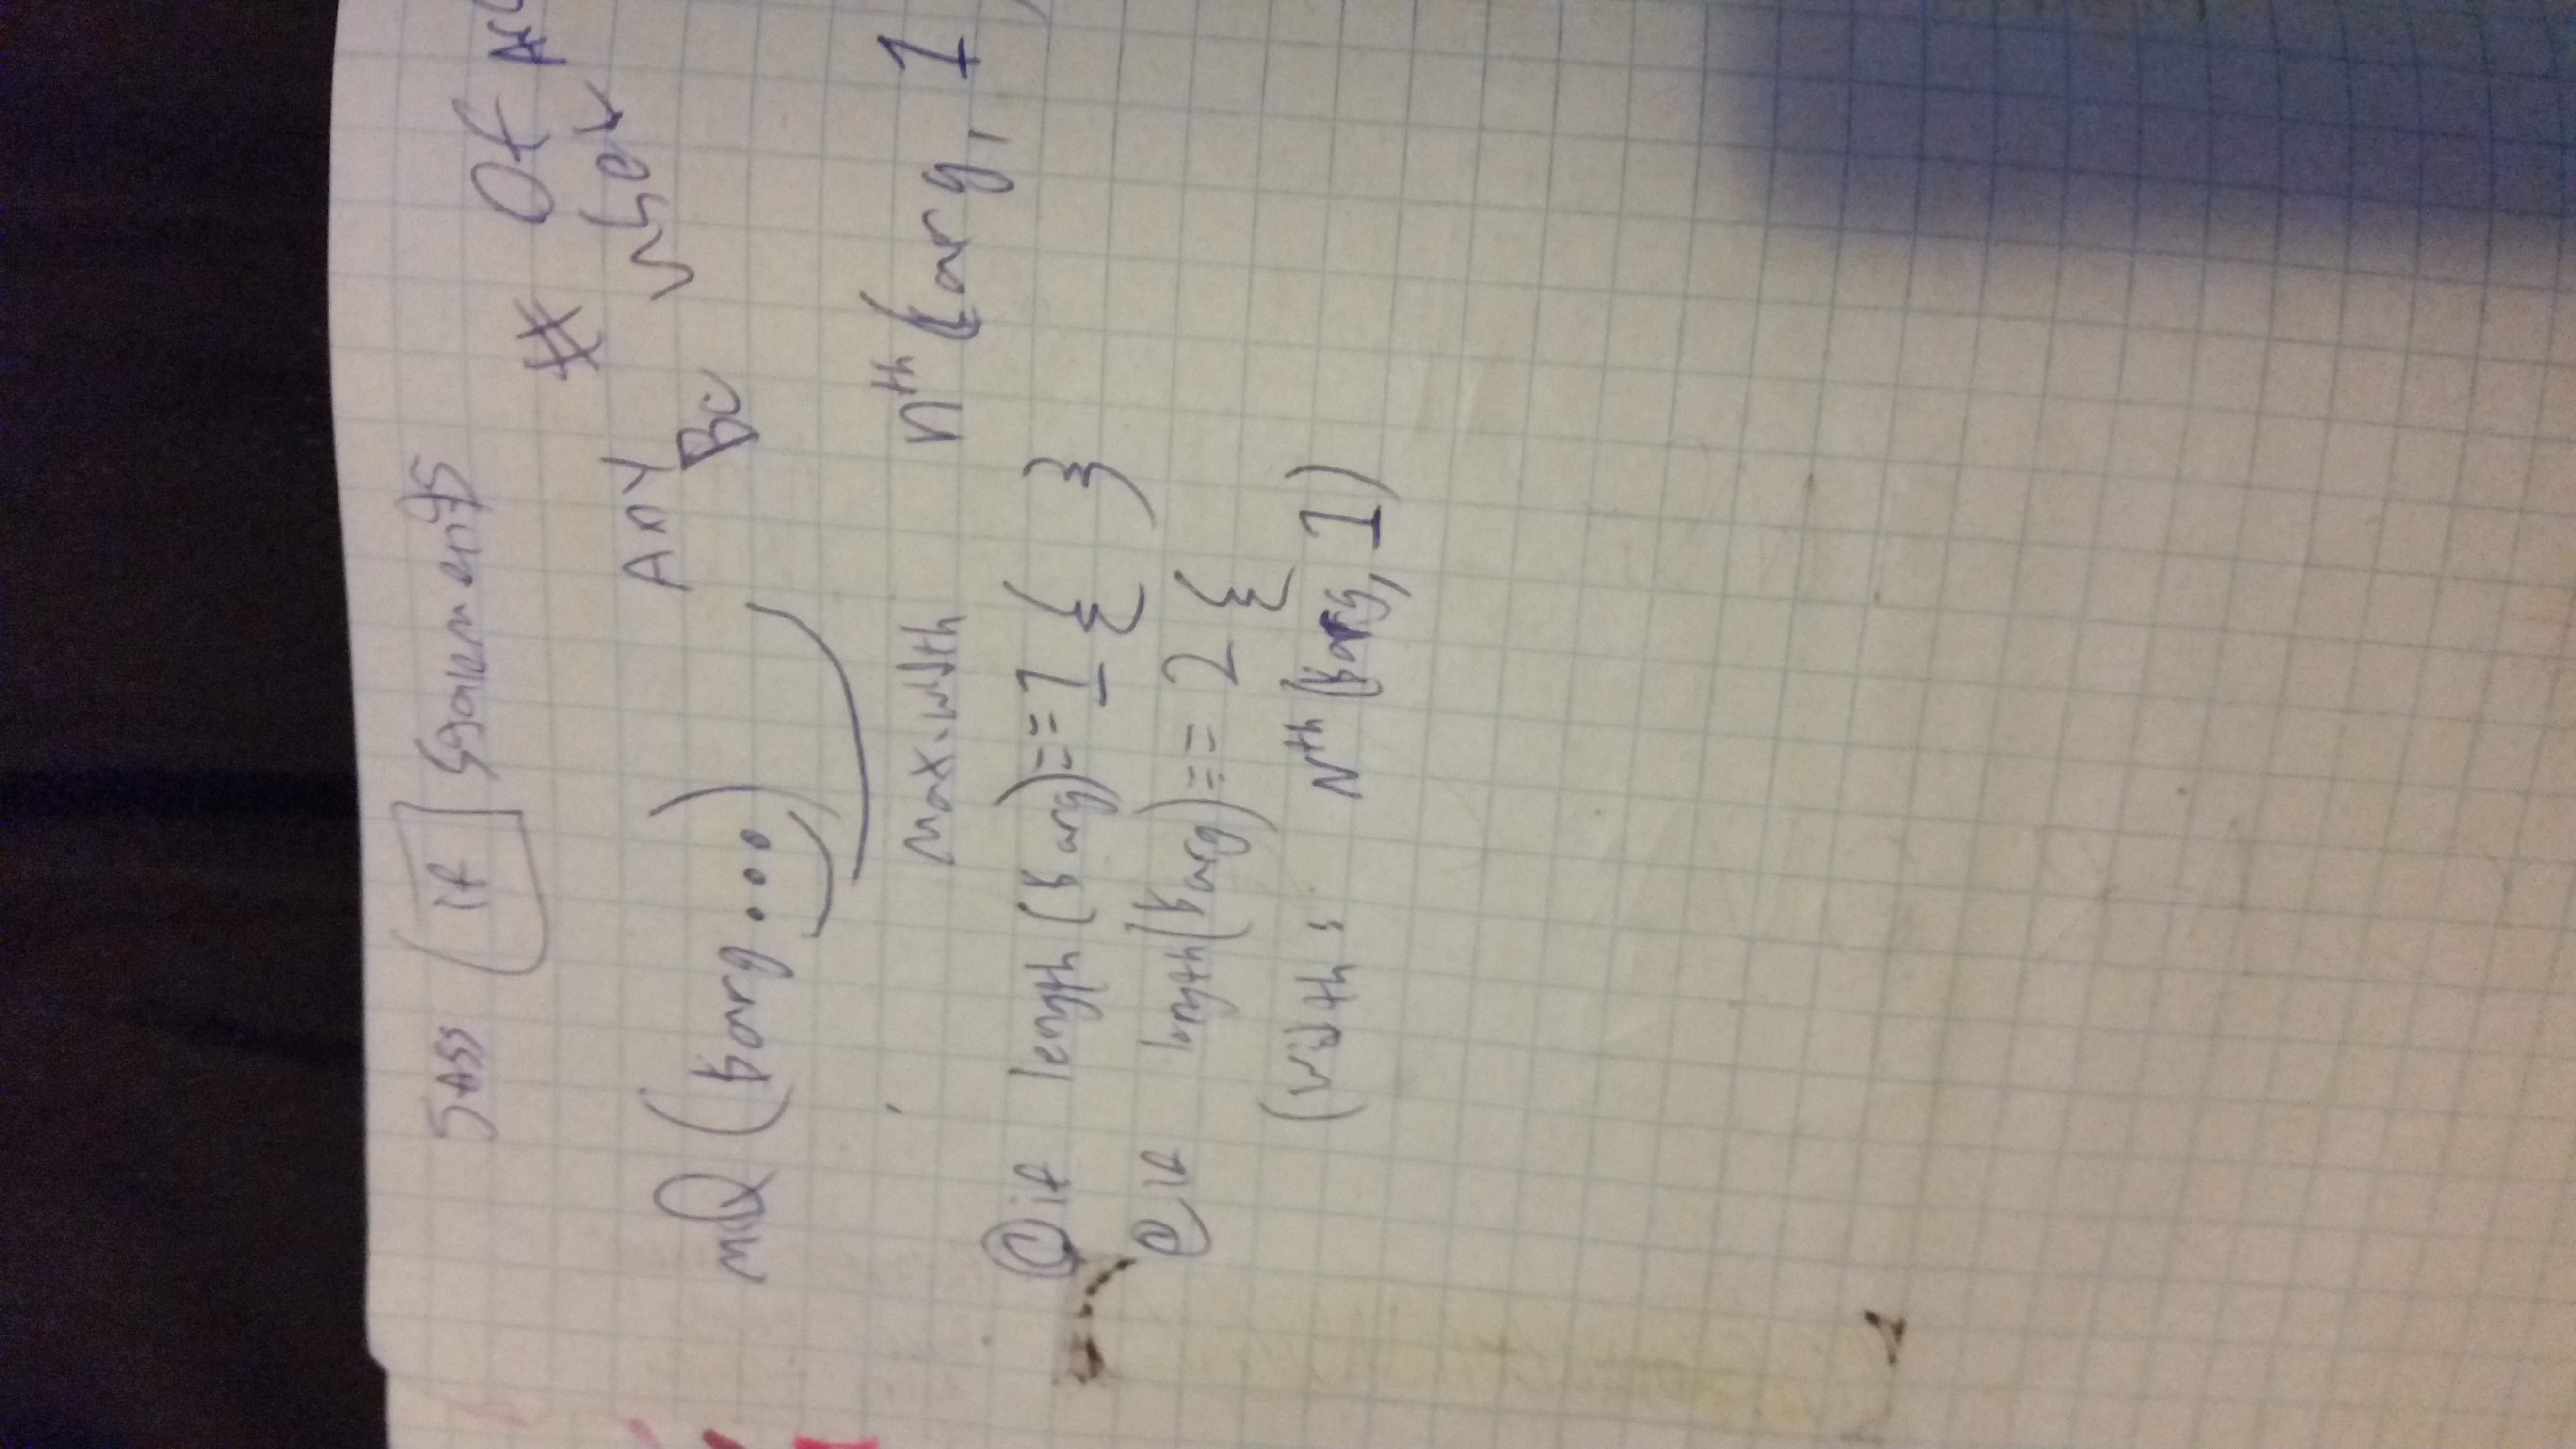 SASS if Statements
# Of
Any used
Bc
mQ ($arg...)
max-width nth ($arg, 1)
@if length ($arg) == 1 { }
@if length ($arg) == 2 {
(width: Nth ($arg, 1)